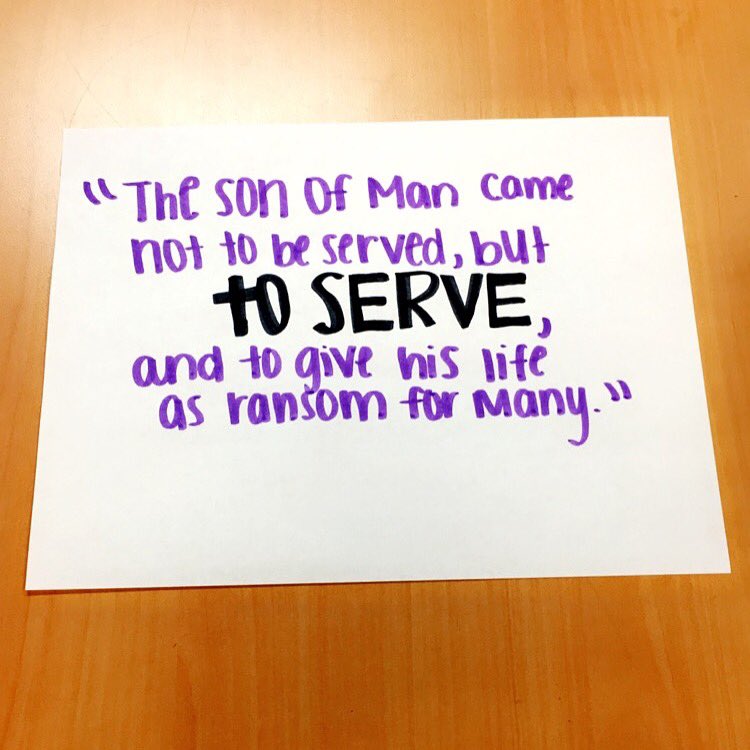 "The Son Of Man Came
not to be served, but
to SERVE,
and to give his life
as ransom for Many."